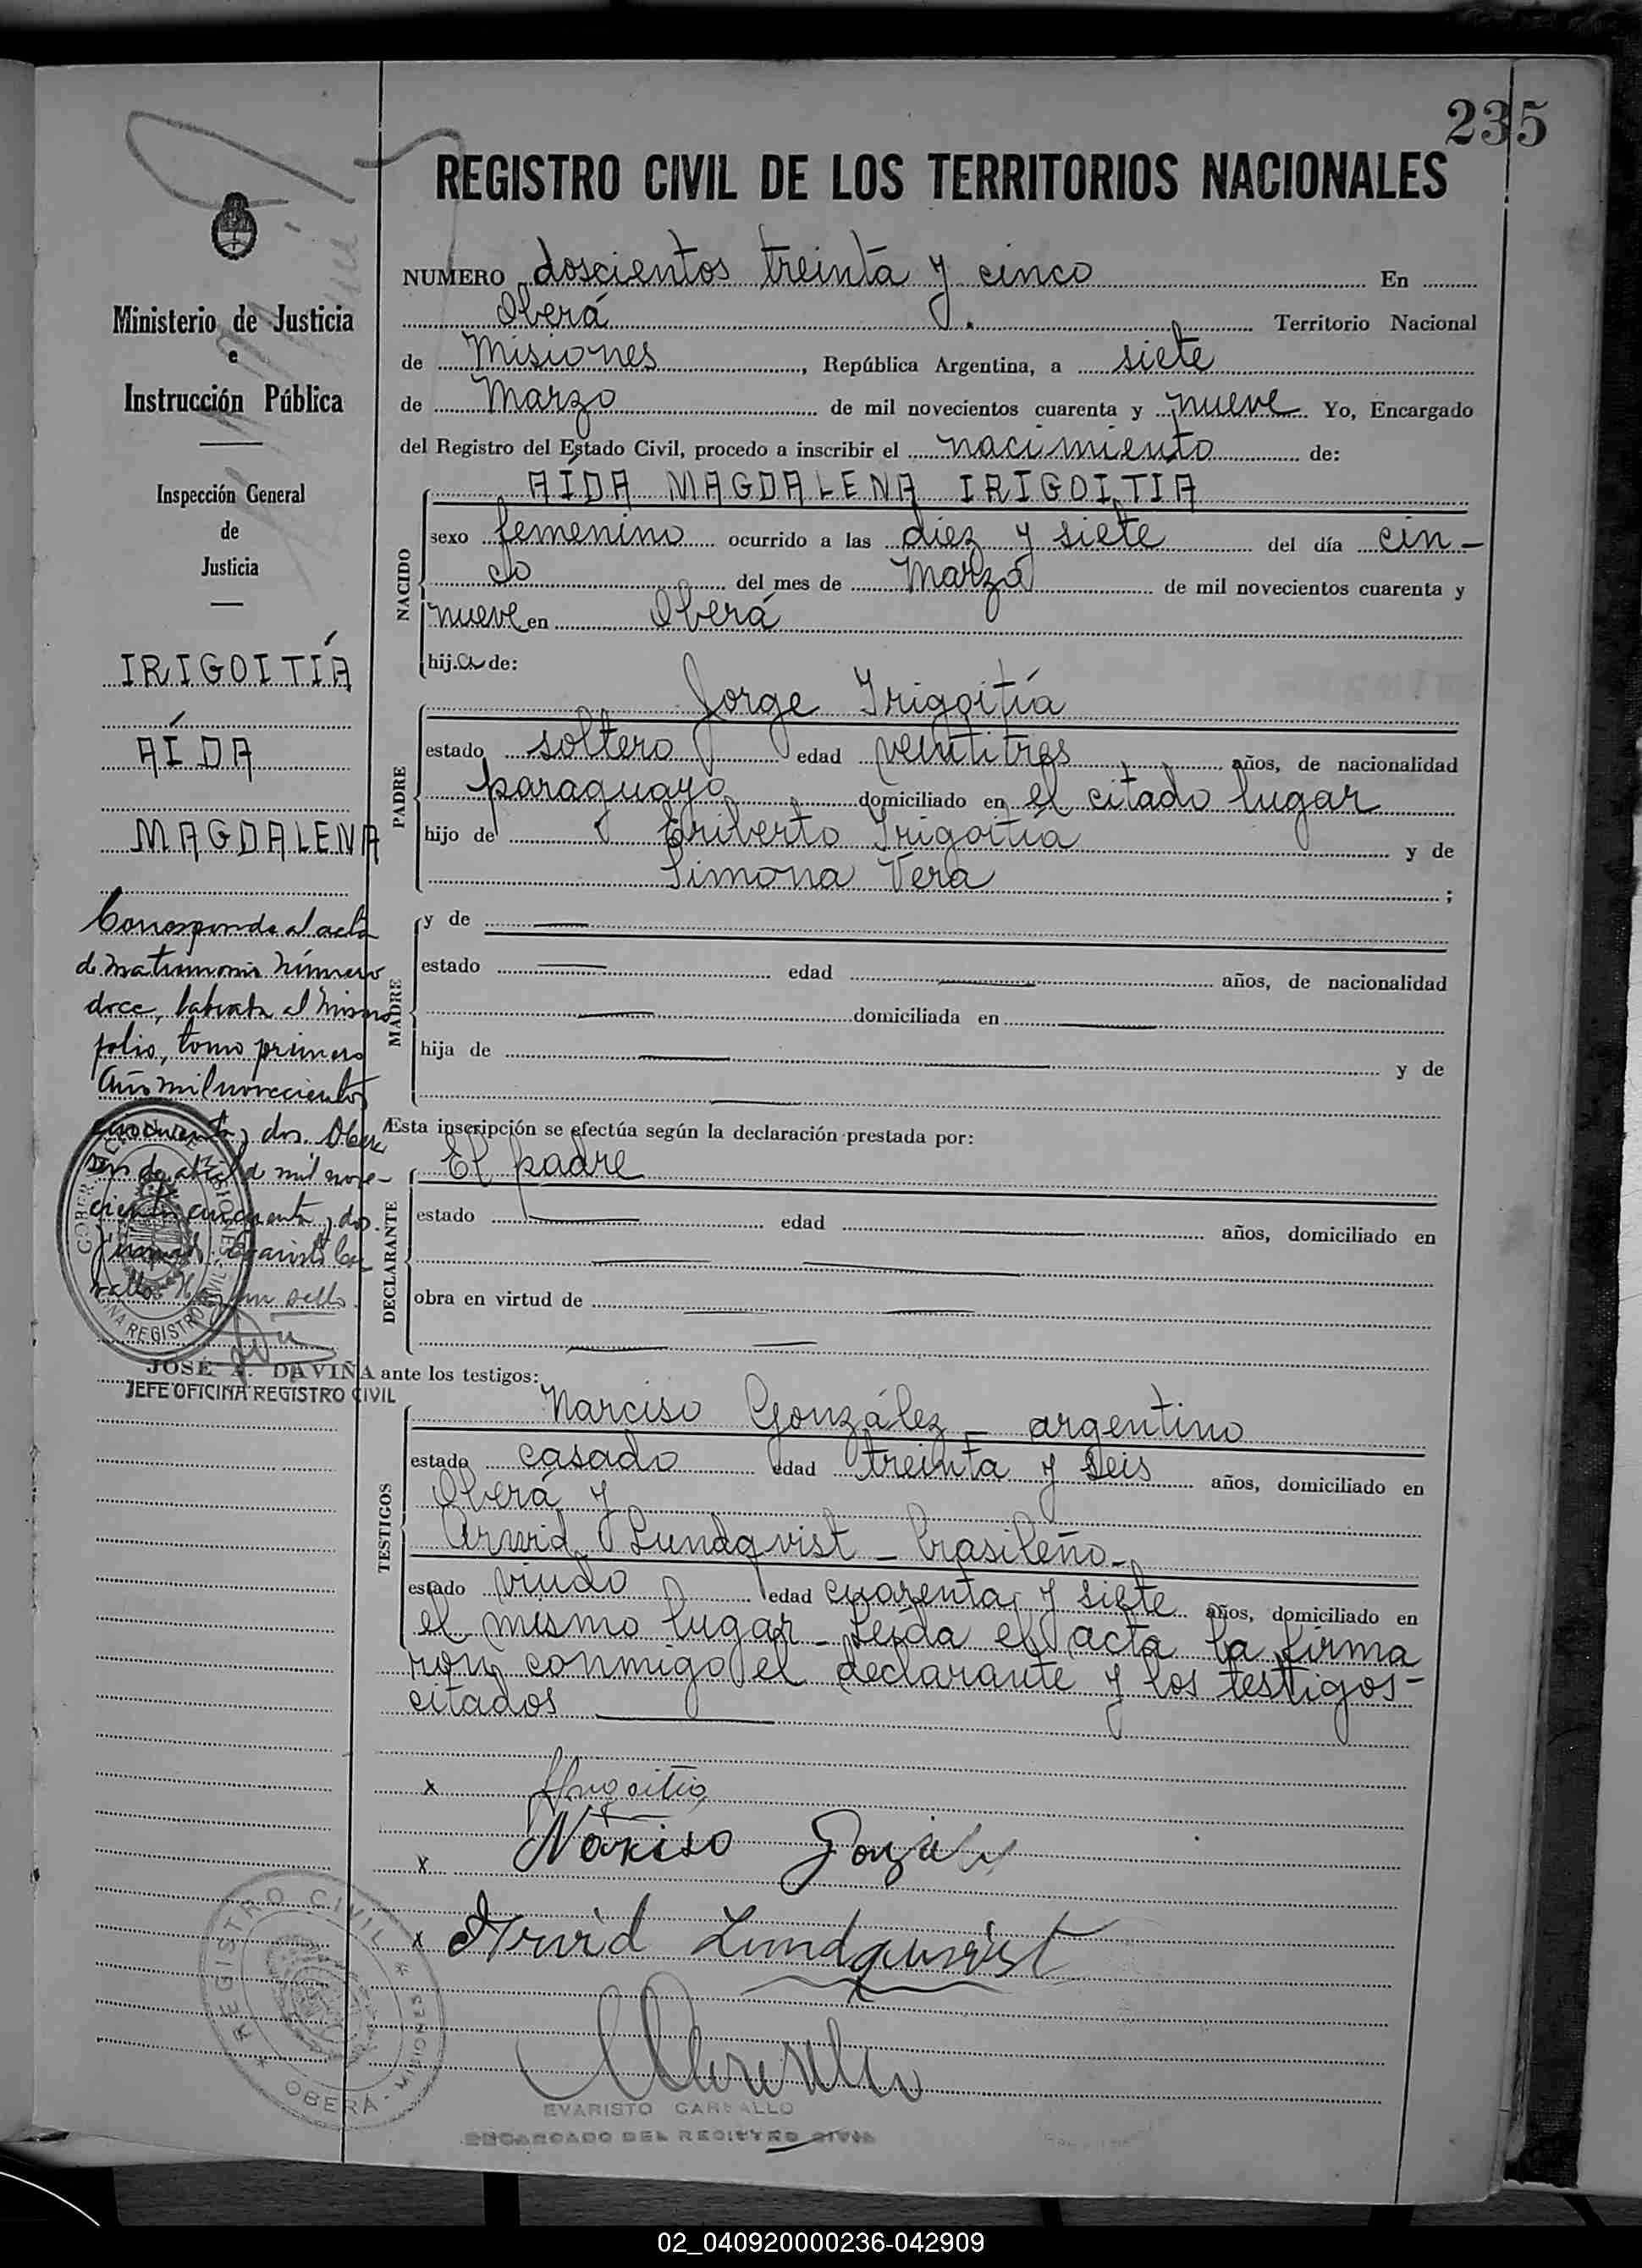 235
REGISTRO CIVIL DE LOS TERRITORIOS NACIONALES
NUMERO doscientos treinta y cinco En
Oberá Territorio Nacional
de Misiones, República Argentina, a siete
de Marzo de mil novecientos cuarenta y nueve Yo, Encargado
del Registro del Estado Civil, procedo a inscribir el nacimiento de:
NACIDO
AÍDA MAGDALENA IRIGOITIA
sexo femenino ocurrido a las diez y siete del día cin-
co del mes de Marzo de mil novecientos cuarenta y
nueve en Oberá
hija de:
PADRE
Jorge Irigoitía
estado soltero edad veintitres años, de nacionalidad
paraguayo domiciliado en el citado lugar
hijo de Eriberto Irigoitía y de
Simona Vera ;
MADRE
y de
estado edad años, de nacionalidad
domiciliada en
hija de y de
Esta inscripción se efectúa según la declaración prestada por:
DECLARANTE
El padre
estado edad años, domiciliado en
obra en virtud de
ante los testigos:
TESTIGOS
Narciso González - argentino
estado casado edad treinta y seis años, domiciliado en
Oberá y
Arwid Lundqvist - brasileño-
estado viudo edad cuarenta y siete años, domiciliado en
el mismo lugar - Leída el acta la firma
ron conmigo el declarante y los testigos-
citados
x Irigoitia
x Narciso Gonzalez
x Arvid Lundquvist
EVARISTO CARBALLO
ENCARGADO DEL REGISTRO CIVIL
REGISTRO CIVIL
* OBERÁ - MISIONES *
Ministerio de Justicia
e
Instrucción Pública
Inspección General
de
Justicia
IRIGOITÍA
AÍDA
MAGDALENA
Corresponde al acta
de matrimonio número
doce, labrada al mismo
folio, tomo primero
año mil novecientos
cincuenta y dos. Oberá
de abril de mil nove-
cientos cincuenta y dos.
Firmado: Evaristo Car
vallo. Hay un sello.
JOSÉ A. DAVIÑA
JEFE OFICINA REGISTRO CIVIL
02_040920000236-042909